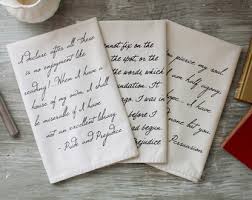 I declare after all there
is no enjoyment like
reading! When I have a
house of my own, I shall
be miserable if I have
not an excellent library
- Pride and Prejudice
fix on the
the spot, or the
the words which
It
ago. I was in
before I
had begun
Prejudice
pierce my soul
am half agony,
hope.. I have
none but you.
- Persuasion